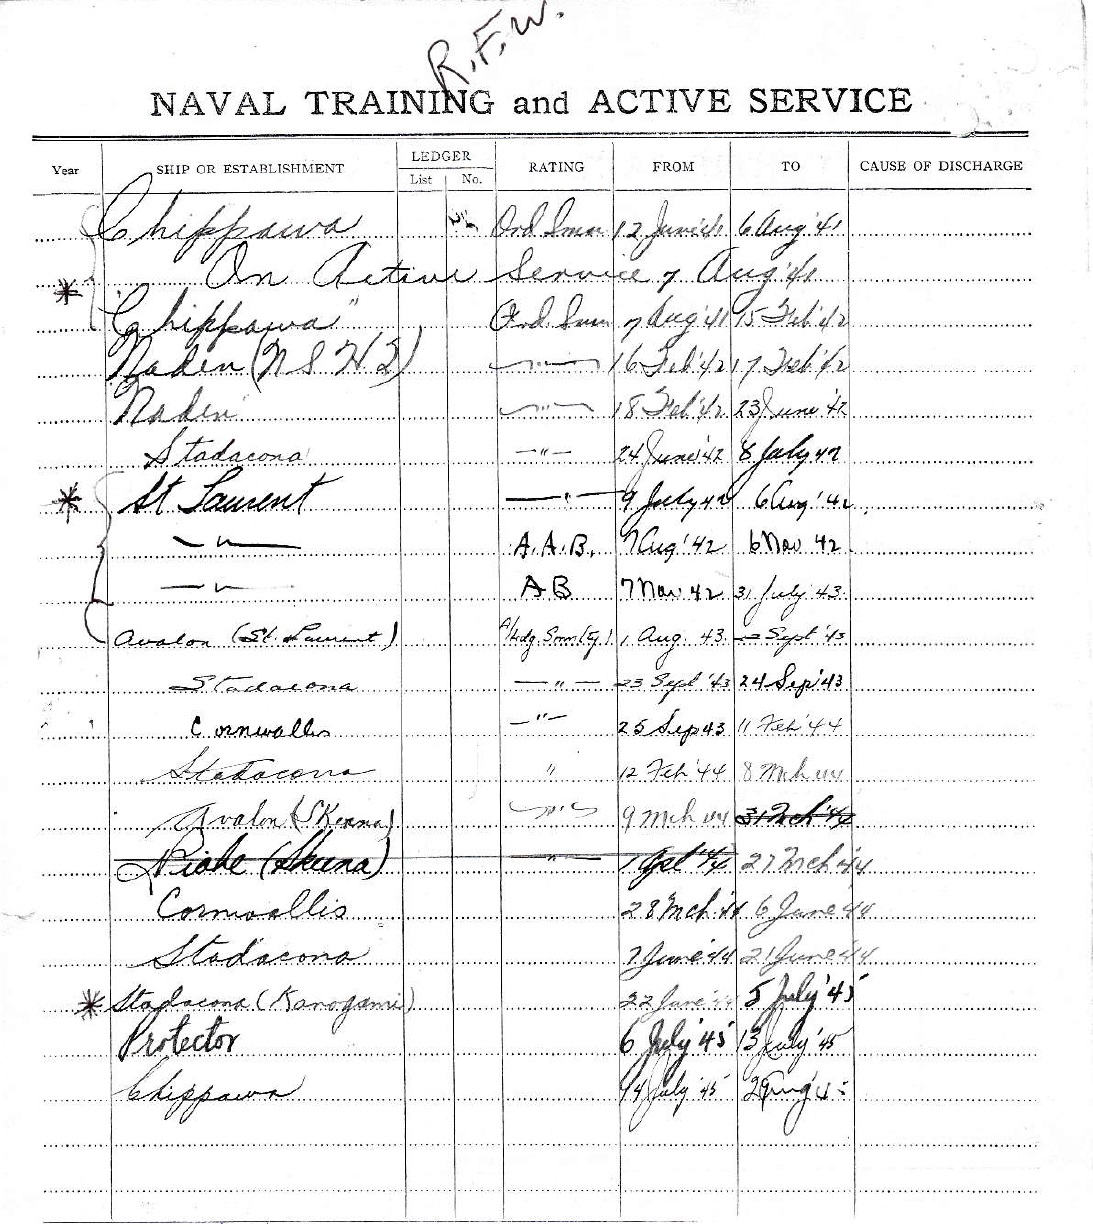 R.F.W.
NAVAL TRAINING and ACTIVE SERVICE
Year SHIP OR ESTABLISHMENT LEDGER List No. RATING FROM TO CAUSE OF DISCHARGE
Chippawa Ord Smn 12 June '41 6 Aug '41
* On Active Service 7 Aug '41
Chippawa " Ord. Smn 7 Aug '41 15 Feb '42
Naden (N S H Q) —"— 16 Feb '42 17 Feb '42
Naden —"— 18 Feb '42 23 June '42
Stadacona —"— 24 June '42 8 July 42
* St Laurent —"— 9 July 42 6 Aug '42
—"— A.A.B. 7 Aug '42 6 Nov 42
—"— AB 7 Nov 42 31 July '43
Avalon (St. Laurent) A/Ldg. Smn (Ty) 1 Aug. 43 22 Sept '43
Stadacona —"— 23 Sept '43 24 Sep '43
Cornwallis —"— 25 Sep 43 11 Feb '44
Stadacona " 12 Feb '44 8 Mch 44
Avalon (Skeena) —"— 9 Mch 44 31 Mch '44
Niobe (Skeena) —"— 1 Apl '44 27 Mch '44
Cornwallis 28 Mch '44 6 June '44
Stadacona 7 June '44 21 June '44
* Stadacona (Kanogami) 22 June '44 5 July '45
Protector 6 July '45 13 July '45
Chippawa 14 July '45 Aug '45